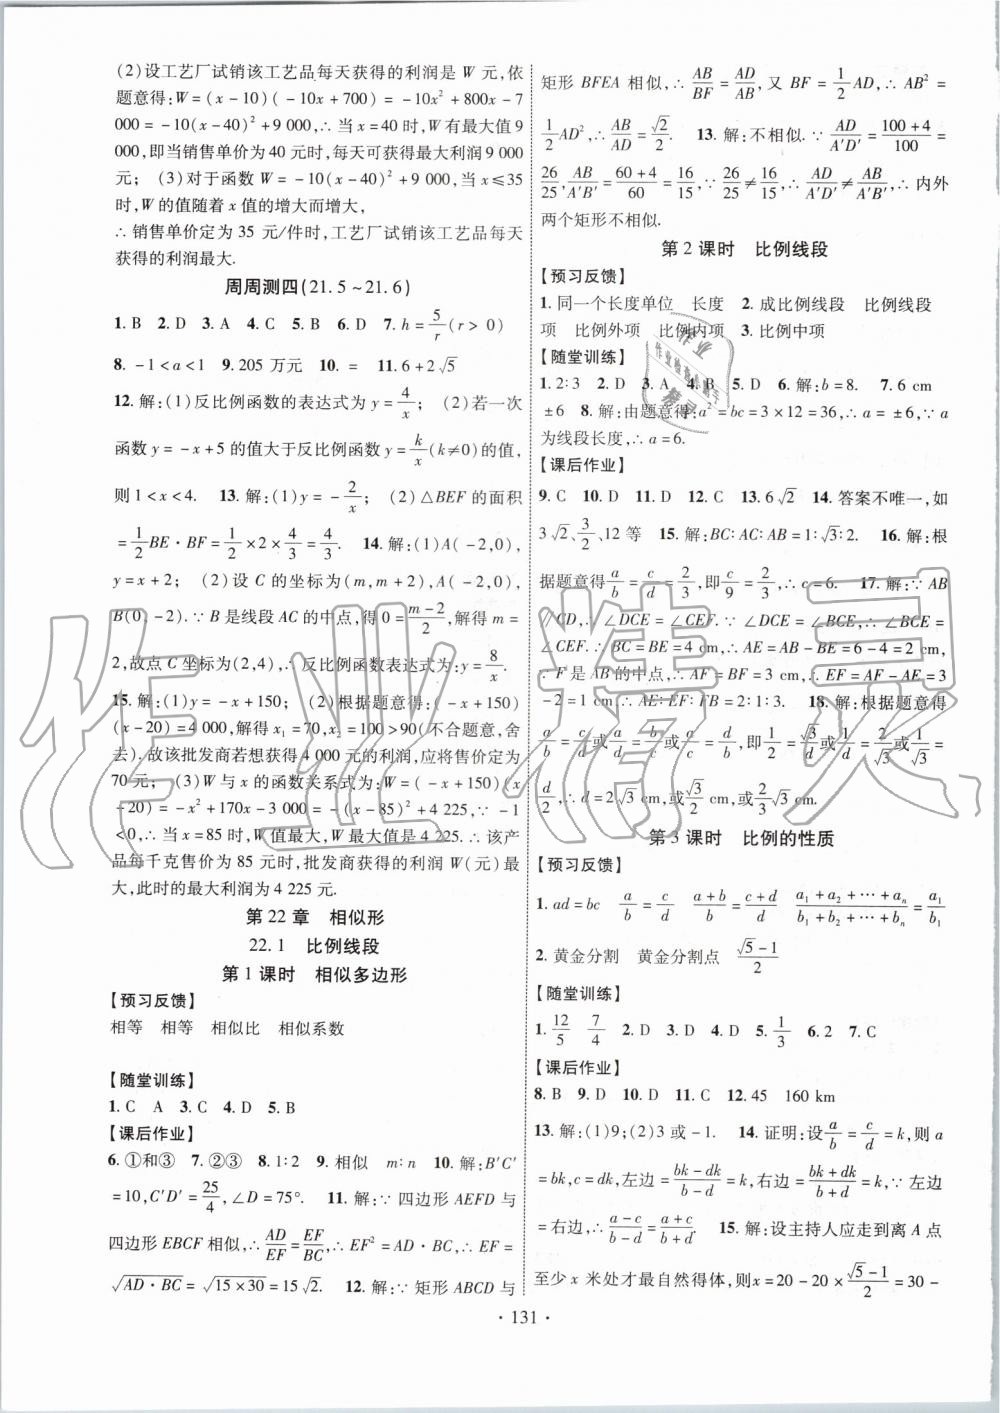 (2)设工艺厂试销该工艺品每天获得的利润是 W 元,依
题意得:W=(x-10)(-10x+700)=-10x²+800x-7
000=-10(x-40)²+9 000,∴当 x=40 时,W 有最大值 9
000,即当销售单价为 40 元时,每天可获得最大利润 9 000
元; (3)对于函数 W=-10(x-40)²+9 000,当 x≤35
时,W 的值随着 x 值的增大而增大,
∴销售单价定为 35 元/件时,工艺厂试销该工艺品每天
获得的利润最大.
周周测四(21.5~21.6)
1. B 2. D 3. A 4. C 5. B 6. D 7. h=5/r(r>0)
8. -1<a<1 9. 205 万元 10. = 11. 6+2√5
12. 解:(1)反比例函数的表达式为 y=4/x; (2)若一次
函数 y=-x+5 的值大于反比例函数 y=k/x(k≠0)的值,
则 1<x<4. 13. 解:(1)y=-2/x; (2)△BEF 的面积
=1/2BE·BF=1/2×2×4/3=4/3. 14. 解:(1)A(-2,0),
y=x+2; (2)设 C 的坐标为(m,m+2),A(-2,0),
B(0,-2),∵B 是线段 AC 的中点,得 0=(m-2)/2,解得 m=
2,故点 C 坐标为(2,4),∴反比例函数表达式为:y=8/x.
15. 解:(1)y=-x+150; (2)根据题意得:(-x+150)
(x-20)=4 000,解得 x₁=70,x₂=100>90(不合题意,舍
去).故该批发商若想获得 4 000 元的利润,应将售价定为
70 元; (3)W 与 x 的函数关系式为:W=(-x+150)(x
-20)=-x²+170x-3 000=-(x-85)²+4 225,∵-1
<0,∴当 x=85 时,W 值最大,W 最大值是 4 225.∴该产
品每千克售价为 85 元时,批发商获得的利润 W(元)最
大,此时的最大利润为 4 225 元.
第 22 章 相似形
22.1 比例线段
第 1 课时 相似多边形
【预习反馈】
相等 相等 相似比 相似系数
【随堂训练】
1. C A 3. C 4. D 5. B
【课后作业】
6. ①和③ 7. ②③ 8. 1∶2 9. 相似 m∶n 10. 解:B′C′
=10,C′D′=25/4,∠D=75°. 11. 解:∵四边形 AEFD 与
四边形 EBCF 相似,∴AD/EF=EF/BC,∴EF²=AD·BC,∴EF=
√(AD·BC)=√(15×30)=15√2. 12. 解:∵矩形 ABCD 与
矩形 BFEA 相似,∴AB/BF=AD/AB,又 BF=1/2AD,∴AB²=
1/2AD²,∴AB/AD=√2/2. 13. 解:不相似.∵AD/A′D′=(100+4)/100=
26/25,AB/A′B′=(60+4)/60=16/15,∵26/25≠16/15,∴AD/A′D′≠AB/A′B′,∴内外
两个矩形不相似.
第 2 课时 比例线段
【预习反馈】
1. 同一个长度单位 长度 2. 成比例线段 比例线段
项 比例外项 比例内项 3. 比例中项
【随堂训练】
1. 2∶3 2. D 3. A 4. B 5. D 6. 解:b=8. 7. 6 cm
±6 8. 解:由题意得:a²=bc=3×12=36,∴a=±6,∵a
为线段长度,∴a=6.
【课后作业】
9. C 10. D 11. D 12. C 13. 6√2 14. 答案不唯一,如
3√2、3/2、12 等 15. 解:BC∶AC∶AB=1∶√3∶2. 16. 解:根
据题意得 a/b=c/d=2/3,即 c/9=2/3,∴c=6. 17. 解:∵AB
∥CD,∴∠DCE=∠CEF.∵∠DCE=∠BCE,∴∠BCE=
∠CEF.∴CB=BE=4 cm.∴AE=AB-BE=6-4=2 cm.
∵F 是 AB 的中点,∴AF=BF=3 cm.∴EF=AF-AE=3
-2=1 cm.∴AE∶EF∶FB=2∶1∶3. 18. 解:根据题意得
a/b=c/d或a/d=c/b或a/b=d/c,即1/2=√3/d或1/d=2/√3或1/√3=
d/2,∴d=2√3 cm,或√3/2 cm,或2/3√3 cm.
第 3 课时 比例的性质
【预习反馈】
1. ad=bc a/b=c/d (a+b)/b=(c+d)/d (a₁+a₂+…+aₙ)/(b₁+b₂+…+bₙ)=a₁/b₁
2. 黄金分割 黄金分割点 (√5-1)/2
【随堂训练】
1. 12/5 7/4 2. D 3. D 4. D 5. 1/3 6. 2 7. C
【课后作业】
8. B 9. D 10. D 11. C 12. 45 160 km
13. 解:(1)9;(2)3 或-1. 14. 证明:设a/b=c/d=k,则 a
=bk,c=dk,左边=(bk-dk)/(b-d)=k,右边=(bk+dk)/(b+d)=k,∵左边
=右边,∴(a-c)/(b-d)=(a+c)/(b+d). 15. 解:设主持人应走到离 A 点
至少 x 米处才最自然得体,则 x=20-20×(√5-1)/2=30-
·131·
作业精灵